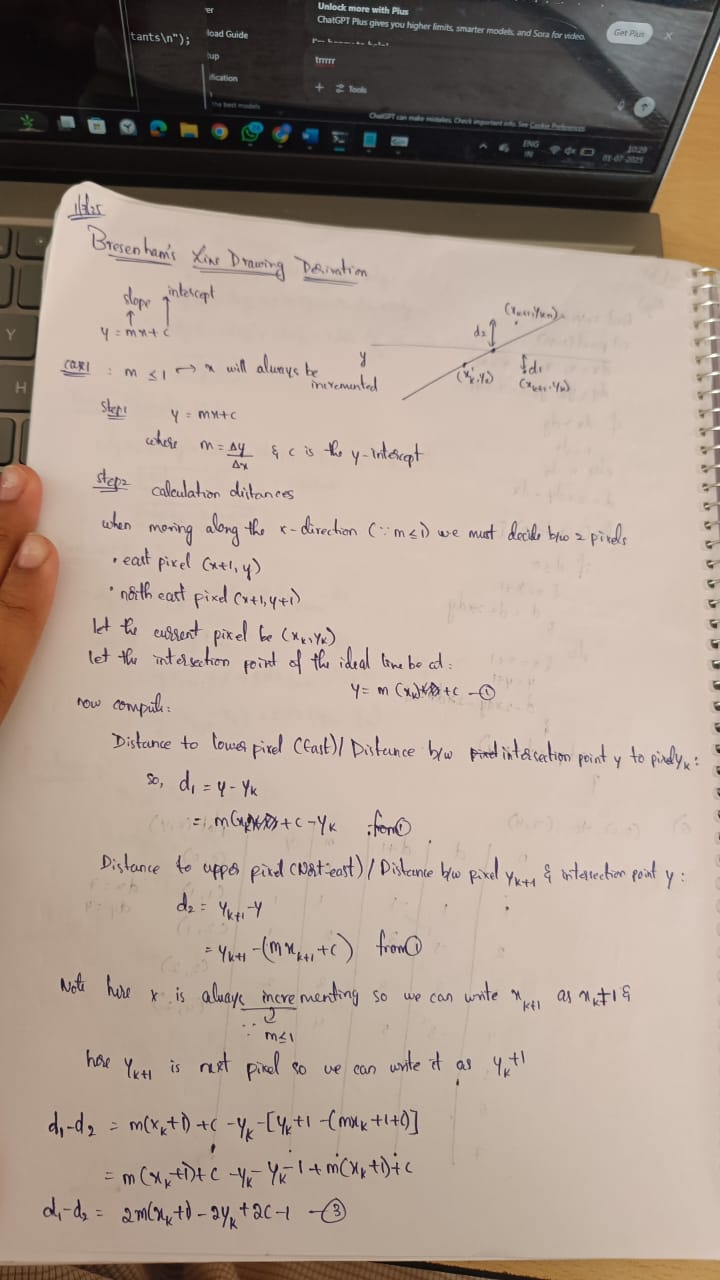 Unlock more with Plus
ChatGPT Plus gives you higher limits, smarter models, and Sora for video.
Get Plus
X
tants\n");
load Guide
trrrrr
+ Tools
the best models
ChatGPT can make mistakes. Check important info. See Cookie Preferences.
ENG
IN
10:29
01-07-2025
Y
H
1/7/25
Bresenham's Line Drawing Derivation
slope intercept
y = mx+c
case1 : m ≤ 1 → x will always be
incremented
y
d2
(xk+1, yk+1)
(xk, yk)
d1
(xk+1, yk)
Step1 y = mx+c
where m = Δy/Δx & c is the y-intercept
step2 calculation distances
when moving along the x-direction (∵ m ≤ 1) we must decide b/w 2 pixels
• east pixel (x+1, y)
• north east pixel (x+1, y+1)
let the current pixel be (xk, yk)
let the intersection point of the ideal line be at:
y = m (xk+1)+c -①
now compute:
Distance to lower pixel (East) / Distance b/w intersection point y to pixel yk:
so, d1 = y - yk
= m(xk+1)+c-yk from①
Distance to upper pixel (Nort-east) / Distance b/w pixel yk+1 & intersection point y:
d2 = yk+1 - y
= yk+1 - (mxk+1 +c) from①
Note here x is always incrementing so we can write xk+1 as xk+1 &
∵ m≤1
here yk+1 is next pixel so we can write it as yk+1
d1-d2 = m(xk+1)+c -yk-[yk+1 -(mxk+1+c)]
= m(xk+1)+c -yk-yk-1+m(xk+1)+c
d1-d2 = 2m(xk+1)-2yk+2c-1 -③